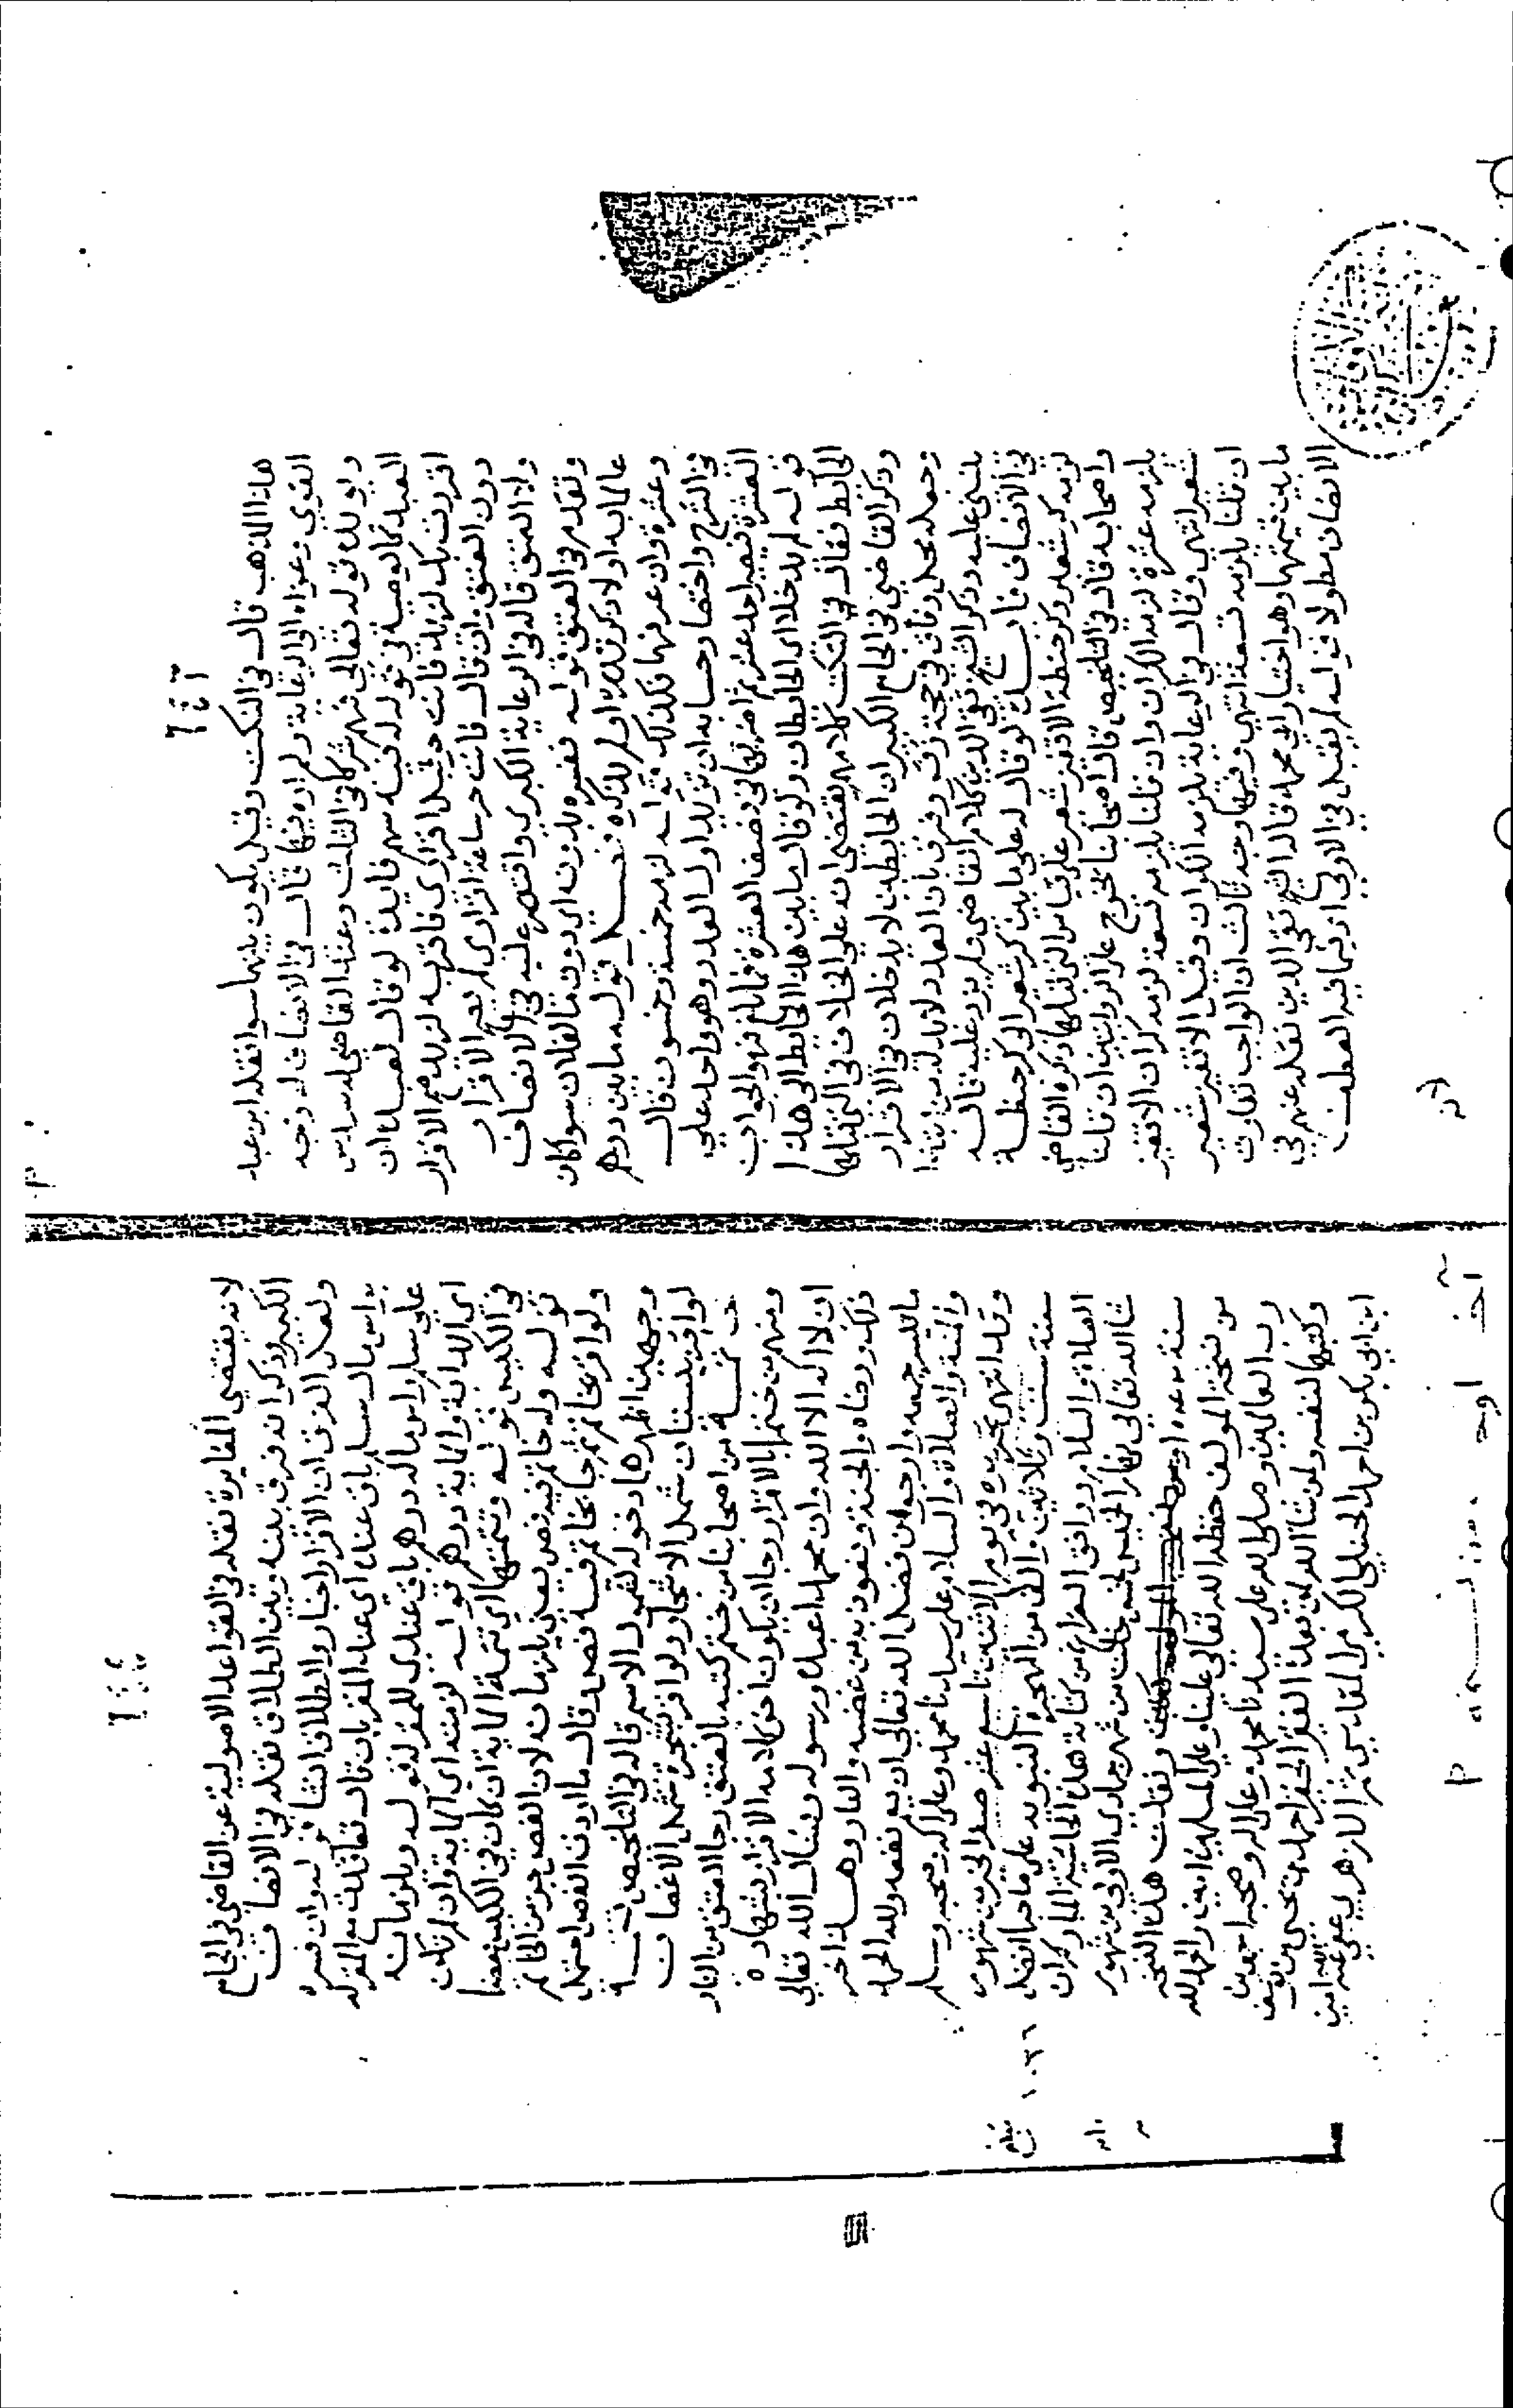 هذا المذهب قال في النكت وقيل يكون بينهما سوا نقله ابن عبد
القوي وعزاه الى الرعاية ولم اره فيها قال في الانصاف له وجه
ويويده قوله تعالى فهم شركا في الثلث وعند القاضي له سدس
العبد كالوصية في قوله له فيه سهم فايدة لو قال لعبده ان
اقررت بك لزيد فانت حر قبل اقراري فاقر به لزيد صح الاقرار
دون العتق وان قال فانت حر ساعة اقراري لم يصح الاقرار
ولا العتق قاله في الرعاية الكبرى واقتصر عليه في الانصاف
وتقدم في العتق قوله ففسره بدونه اي دون مال فلان سوا كان
عالما بداو لا ذكر قدره او لم يذكره فصل قوله ما بين درهم
وعشرة وان عرفهما فكذلك قوله لزمه خمسة وخمسون قال
في الشرح واختصار حسابه ان تزيد اول العدد وهو واحد على
العشرة فيصير احد عشر ثم اضربها في نصف العشرة فما بلغ فهو الجواب
قوله لم يدخلا اي الحايطان ولو قال ما بين هذا الحايط الى هذا
الحايط فقال في النكت كلامهم يقتضي انه على الخلاف في التي قبلها
وذكر القاضي في الجامع الكبير ان الحايطين لا يدخلان في الاقرار
وجعله محل وفاق في حجة زفر وفرق بان العدد لا بد له من ابتدا
ينبني عليه وذكر الشيخ تقي الدين كلام القاضي ولم يزد عليه قاله
في الانصاف فايدة لو قال له علي ما بين كر شعير الى كر حنطة
لزمه كر شعير وكر حنطة الا قفيز شعير على قياس التي قبلها ذكره القاضي
واصحابه قال في التلخيص قال اصحابنا يخرج على الروايتين ان قلنا
يلزمه عشرة لزمه الكران وان قلنا يلزمه تسعة لزمه كران الا قفيز
شعير انتهى وقال في الرعاية يلزمه الكران وقيل الا قفيز شعير
ان قلنا يلزمه تسعة انتهى وفيها وجه ثالث ان الواجب تفاوت
ما بين قيمتهما وهو اختيار ابي محمد قاله الشيخ تقي الدين نقله عنهم في
الانصاف مطولا قوله لم يقبل في الاولى او كما فيه العطف
لانه
لانه يقتضي المغايرة نقله في القواعد الاصولية عن القاضي في الجامع
الكبير وذكر انه فرق بينه وبين الطلاق نقله في الانصاف
ولعل الفرق ان الاقرار اخبار والطلاق انشا قوله وان فسره
براس مال سلم بان عنده اي عند المقر بان قال تعاقدت مع المقر له
على سلم راس ماله درهم باق عندي للمقر له قوله ويلزمانه
اي الدابة والماية درهم قوله لزمته اي الماية وان لم تكن
في الكيس قوله وتتمتها اي تتمة الماية ان كان في الكيس بعضها
قوله وله خاتم فيه فص يعني يلزمانه لان الفص جزء من الخاتم
ولو اقر بخاتم ثم جا بخاتم فيه فص وقال ما اردت الفص احتمل
وجهين اظهرهما دخوله لشمول الاسم قاله في التلخيص تتمة
لو اقر ببستان شمل الاشجار ولو اقر بشجرة شمل الاغصان
تتمة من اصحابنا من ختم كتبه بالعتق رجا العتق من النار
ومنهم من ختمها بالاقرار رجا ان يكون اخر كلامه الاقرار بشهادة
ان لا اله الا الله وان محمدا عبده ورسوله ونسال الله تعالى
ذلك ورضاه والجنة ونعوذ به من غضبه والنار وهذا اخر
ما تيسر جمعه وارجو من فضل الله تعالى ان يعم نفعه ولله الحمد
والمنة والصلاة والسلام على سيدنا محمد وعلى اله وصحبه وسلم
وقد انتهى تحريره في يوم الاثنين تاسع عشر صفر الخير من شهور
سنة ست وثلاثين والف من الهجرة النبوية على مهاجرها افضل ١٠٣٦
الصلاة والسلام ووافق الفراغ من كتابة هذه الحاشية المباركة ان
شا الله تعالى نهار الخميس لخمسة خلت من شهر جمادى الاولى من شهور
سنة ونقلت هذه النسخة
من نسخة المولف حفظه الله تعالى علينا وعلى المسلمين امين والحمد لله
رب العالمين وصلى الله على سيدنا محمد وعلى اله وصحبه اجمعين
وكتبها لنفسه ولمن شا الله من بعده الفقير الحقير احمد بن يحيى بن يوسف
ابن ابي بكر بن احمد الحنبلي الكرمي المقدسي ثم الازهري عفي عنه امين
بلغ